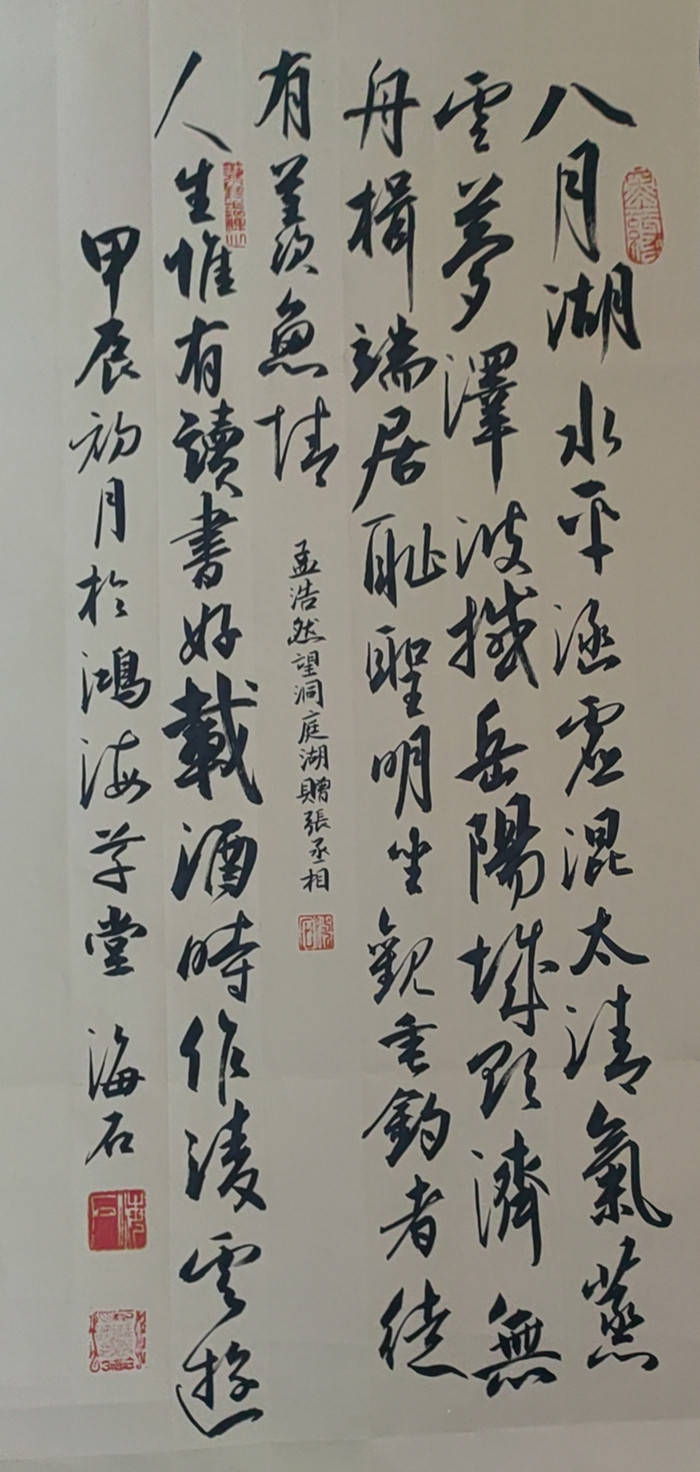 八月湖水平涵虛混太清氣蒸
雲夢澤波撼岳陽城欲濟無
舟楫端居耻聖明坐觀垂釣者徒
有羨魚情
孟浩然望洞庭湖贈張丞相
人生惟有讀書好載酒時作淩雲遊
甲辰初月於鴻海草堂 海石
海石